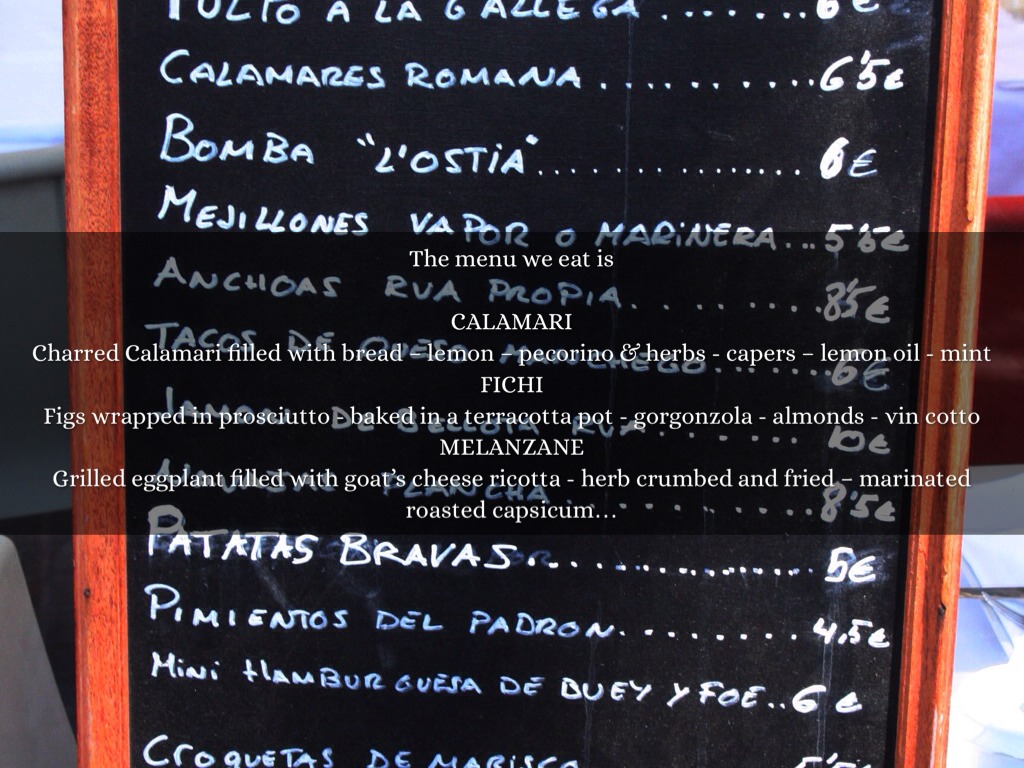 PULPO A LA GALLEGA ........6€
CALAMARES ROMANA ..........6'5€
BOMBA "L'OSTIA"...............6€
MEJILLONES VAPOR O MARINERA...5'5€
The menu we eat is
ANCHOAS RUA PROPIA.........8'5€
CALAMARI
TACOS DE QUESO MANCHEGO........6€
Charred Calamari filled with bread – lemon – pecorino & herbs - capers – lemon oil - mint
FICHI
Figs wrapped in prosciutto - baked in a terracotta pot - gorgonzola - almonds - vin cotto
JAMON DE BELLOTA RUA........10€
MELANZANE
Grilled eggplant filled with goat’s cheese ricotta - herb crumbed and fried – marinated
PLANCHA........8'5€
roasted capsicum…
PATATAS BRAVAS...............5€
PIMIENTOS DEL PADRON.........4,5€
MINI HAMBURGUESA DE BUEY Y FOE..6€
CROQUETAS DE MARISCO